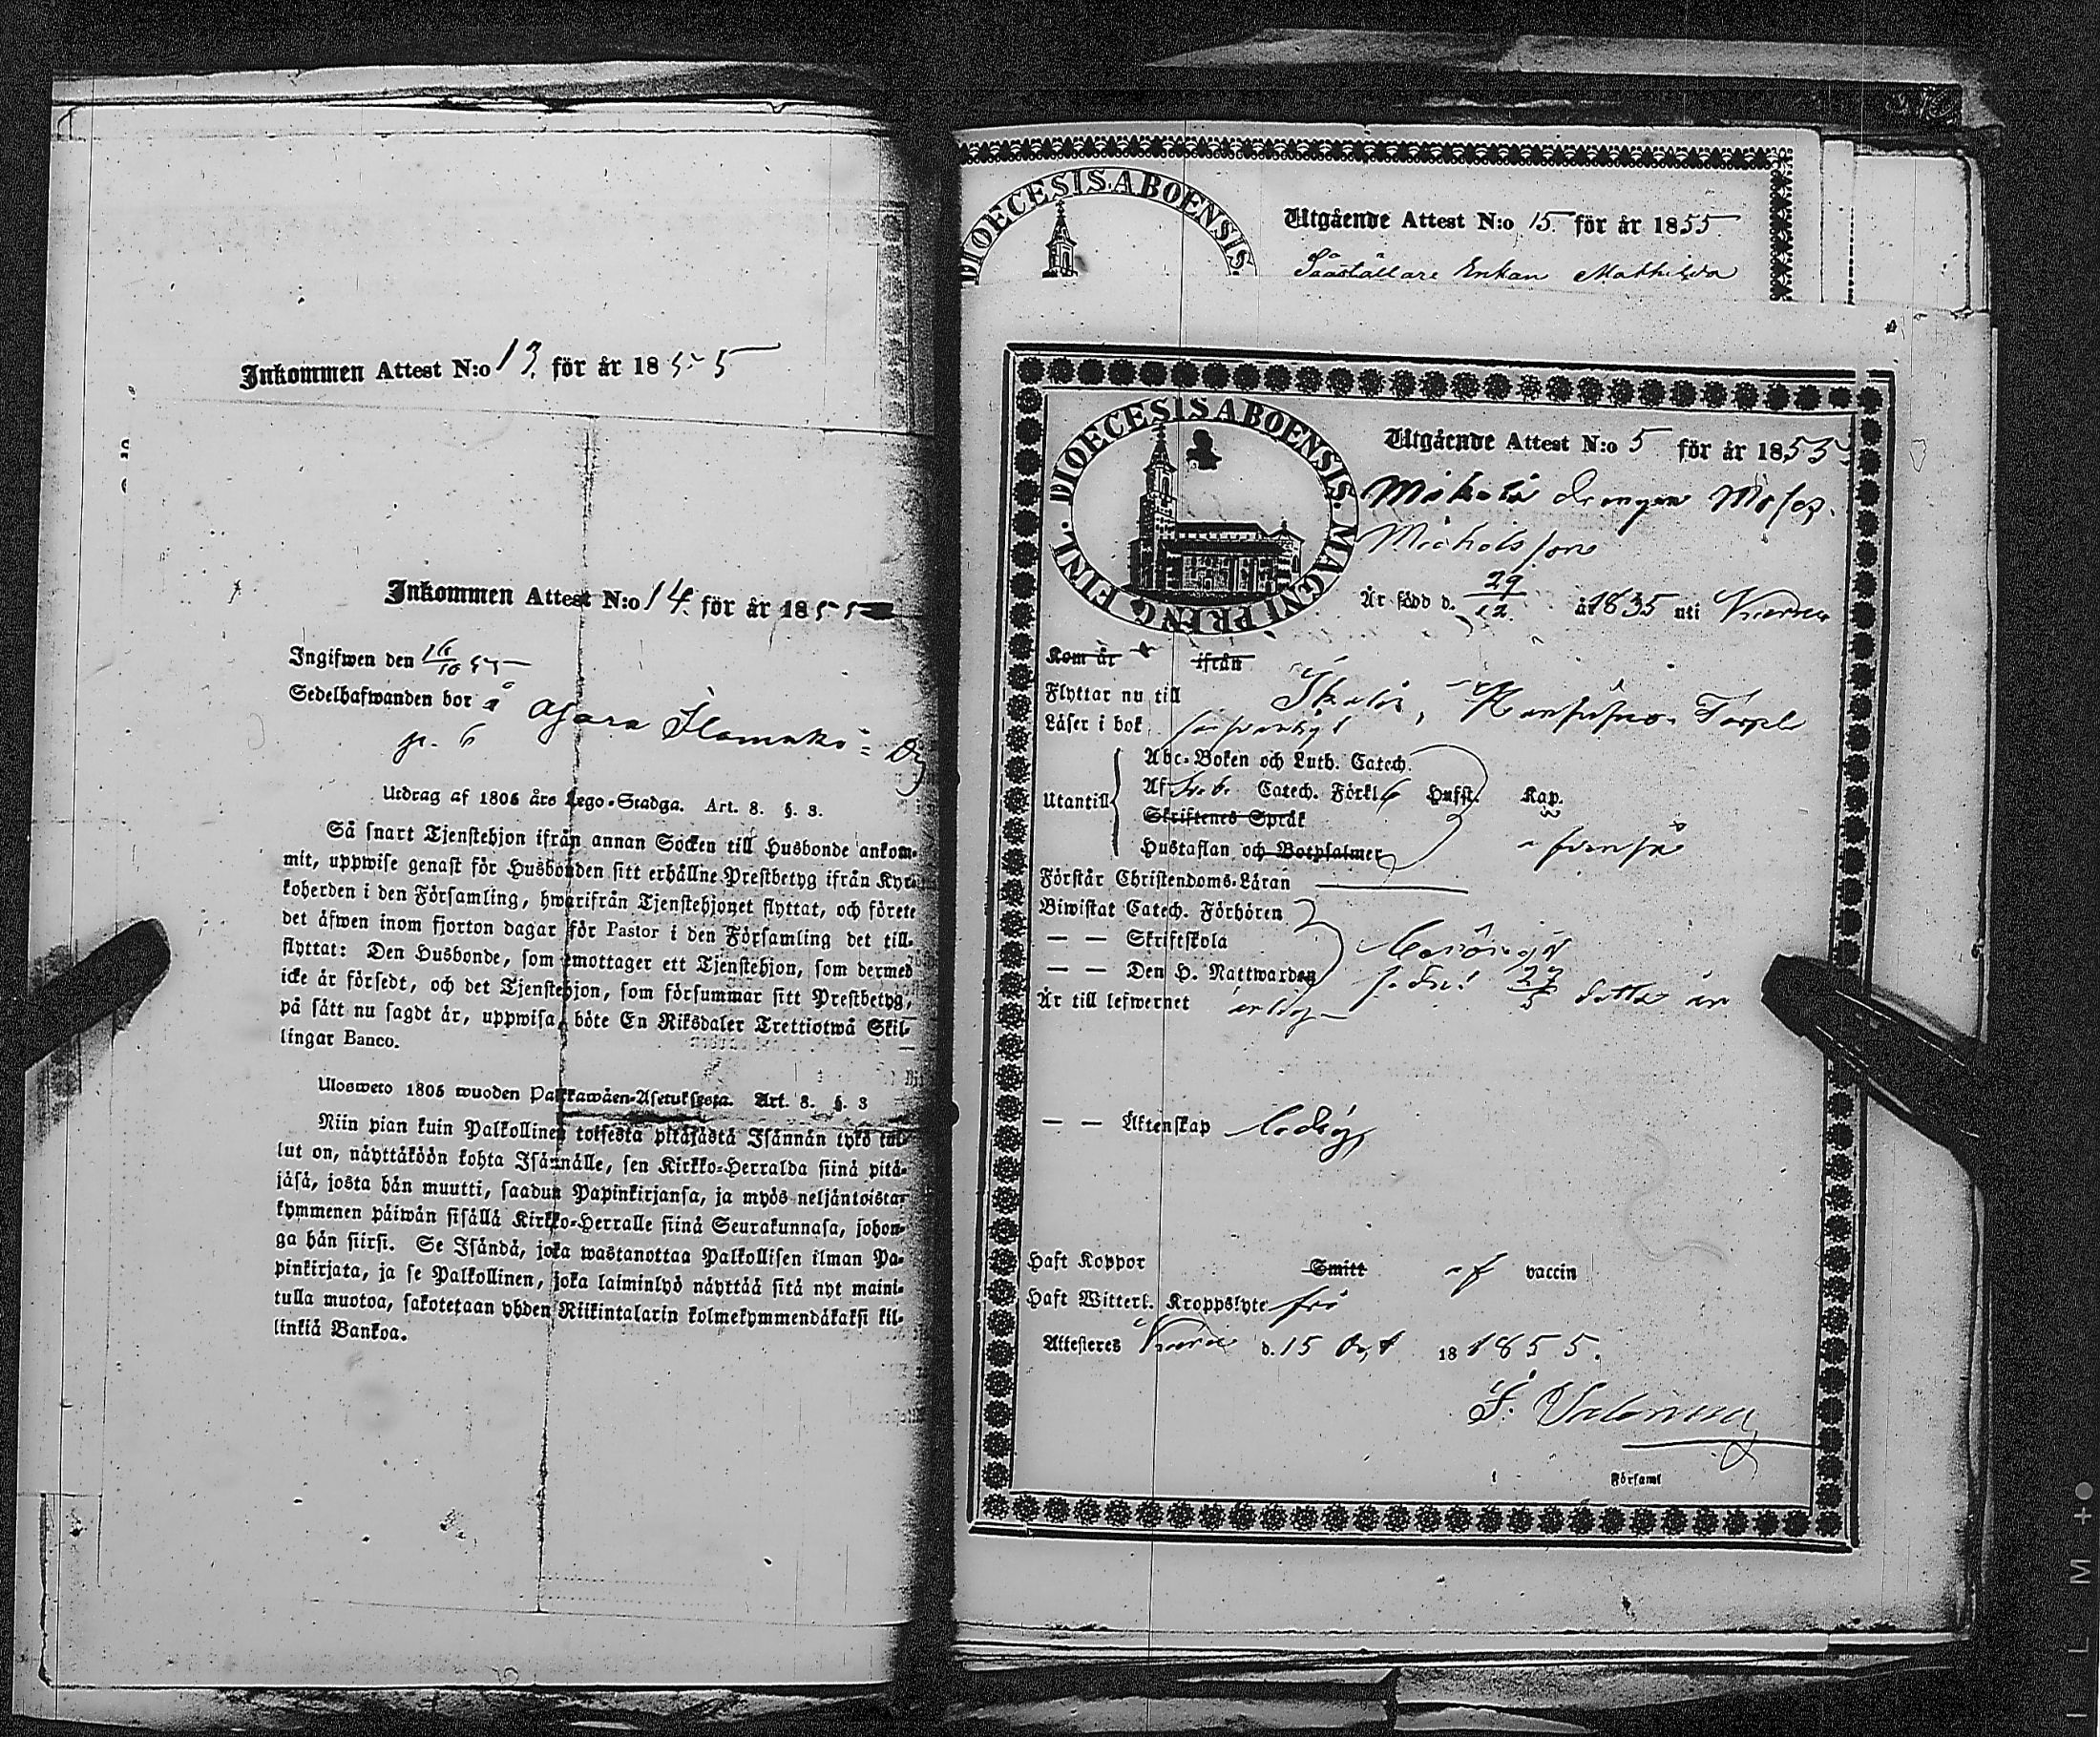 Inkommen Attest N:o 13. för år 1855
Inkommen Attest N:o 14. för år 1855
Ingifwen den 16/10 55
Sedelhafwanden bor å Ojara
p. 6
Utdrag af 1805 års Lego-Stadga. Art. 8. §. 3.
Så snart Tjenstehjon ifrån annan Socken till Husbonde ankom-
mit, uppwise genast för Husbonden sitt erhållne Prestbetyg ifrån Kyr-
koherden i den Församling, hwarifrån Tjenstehjonet flyttat, och förete
det äfwen inom fjorton dagar för Pastor i den Församling det till-
flyttat: Den Husbonde, som emottager ett Tjenstehjon, som dermed
icke är försedt, och det Tjenstehjon, som försummar sitt Prestbetyg,
på sätt nu sagdt är, uppwisa, böte En Riksdaler Trettiotwå Skil-
lingar Banco.
Ulosweto 1805 wuoden Palkkawäen-Asetuksesta. Art. 8. §. 3
Niin pian kuin Palkollinen toisesta pitäjästä Isännän tykö tul-
lut on, näyttäköön kohta Isännälle, sen Kirkko-Herralda siinä pitä-
jäsä, josta hän muutti, saadun Papinkirjansa, ja myös neljäntoista-
kymmenen päiwän sisällä Kirkko-Herralle siinä Seurakunnasa, johon-
ga hän siirsi. Se Isändä, joka wastanottaa Palkollisen ilman Pa-
pinkirjata, ja se Palkollinen, joka laiminlyö näyttää sitä nyt maini-
tulla muotoa, sakotetaan yhden Riikintalarin kolmekymmendäkaksi kil-
linkiä Bankoa.
DIOECESIS ABOENSIS.
Utgående Attest N:o 15 för år 1855
Enkan Mathilda
FINL. DIOECESIS ABOENSIS. MAGNI PRING.
Utgående Attest N:o 5 för år 1855
drengen Moses
Michelsson
Är född d. 29/12 år 1835 uti
Kom år ifrån
Flyttar nu till Ikalis, Torpet
Läser i bok försvarligt
Abc-Boken och Luth. Catech.
Utantill Af Catech. Förkl 6 Hufst. Kap.
Skriftenes Språk
Hustaflan och Botpsalmer
Förstår Christendoms-Läran
Biwistat Catech. Förhören
— — Skriftskola
— — Den H. Nattwarden 27/5 detta år
Är till lefwernet ärlig
— — Äktenskap ledig
Haft Koppor Smitt af vaccin
Haft Witterl. Kroppslyte fri
Attesteres d. 15 Oct 18 1855.
Församl